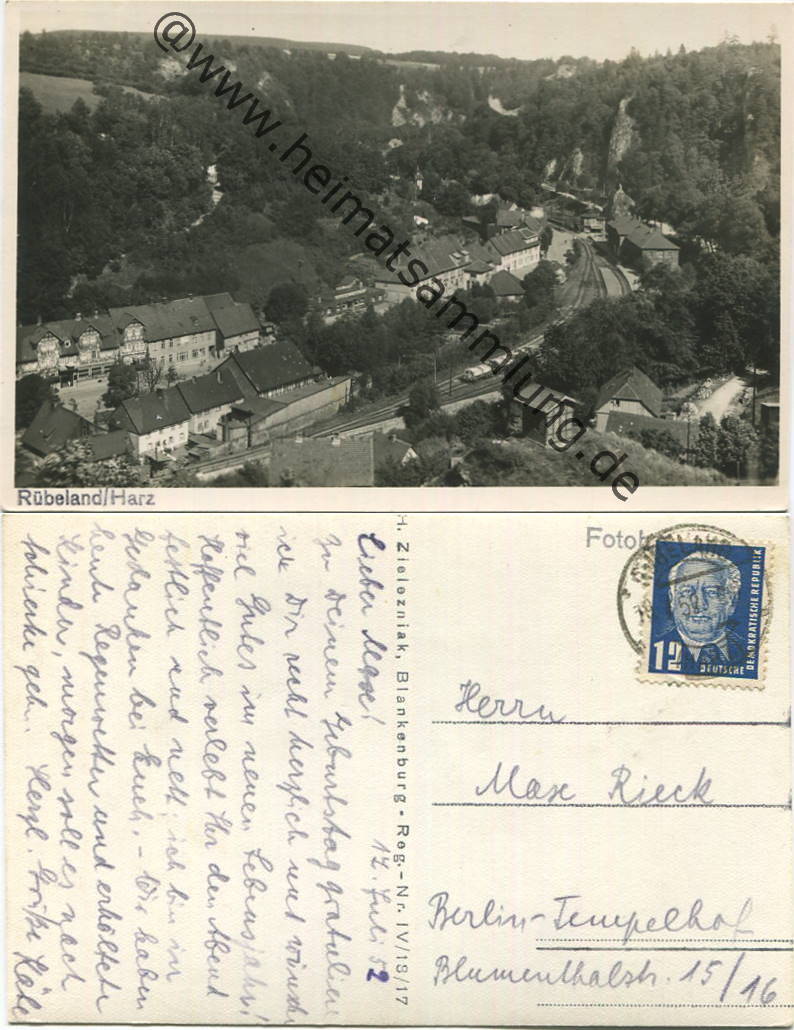 @www.heimatsammlung.de
Rübeland/Harz
Lieber Max! 17. Juli 52
Zu Deinem Geburtstag gratuliere
ich Dir recht herzlich und wünsche
viel Gutes im neuen Lebensjahr!
Hoffentlich verlebt Ihr den Abend
festlich und nett, ich bin in
Gedanken bei Euch. - Wir haben
heute Regenwetter und erkältete
Kinder, morgen soll es nach
geh. Herzl. Grüße Käte
H. Zielezniak, Blankenburg - Reg.-Nr. IV/13/17
12
DEUTSCHE
DEMOKRATISCHE REPUBLIK
Herrn
Max Rieck
Berlin-Tempelhof
Blumenthalstr. 15/16